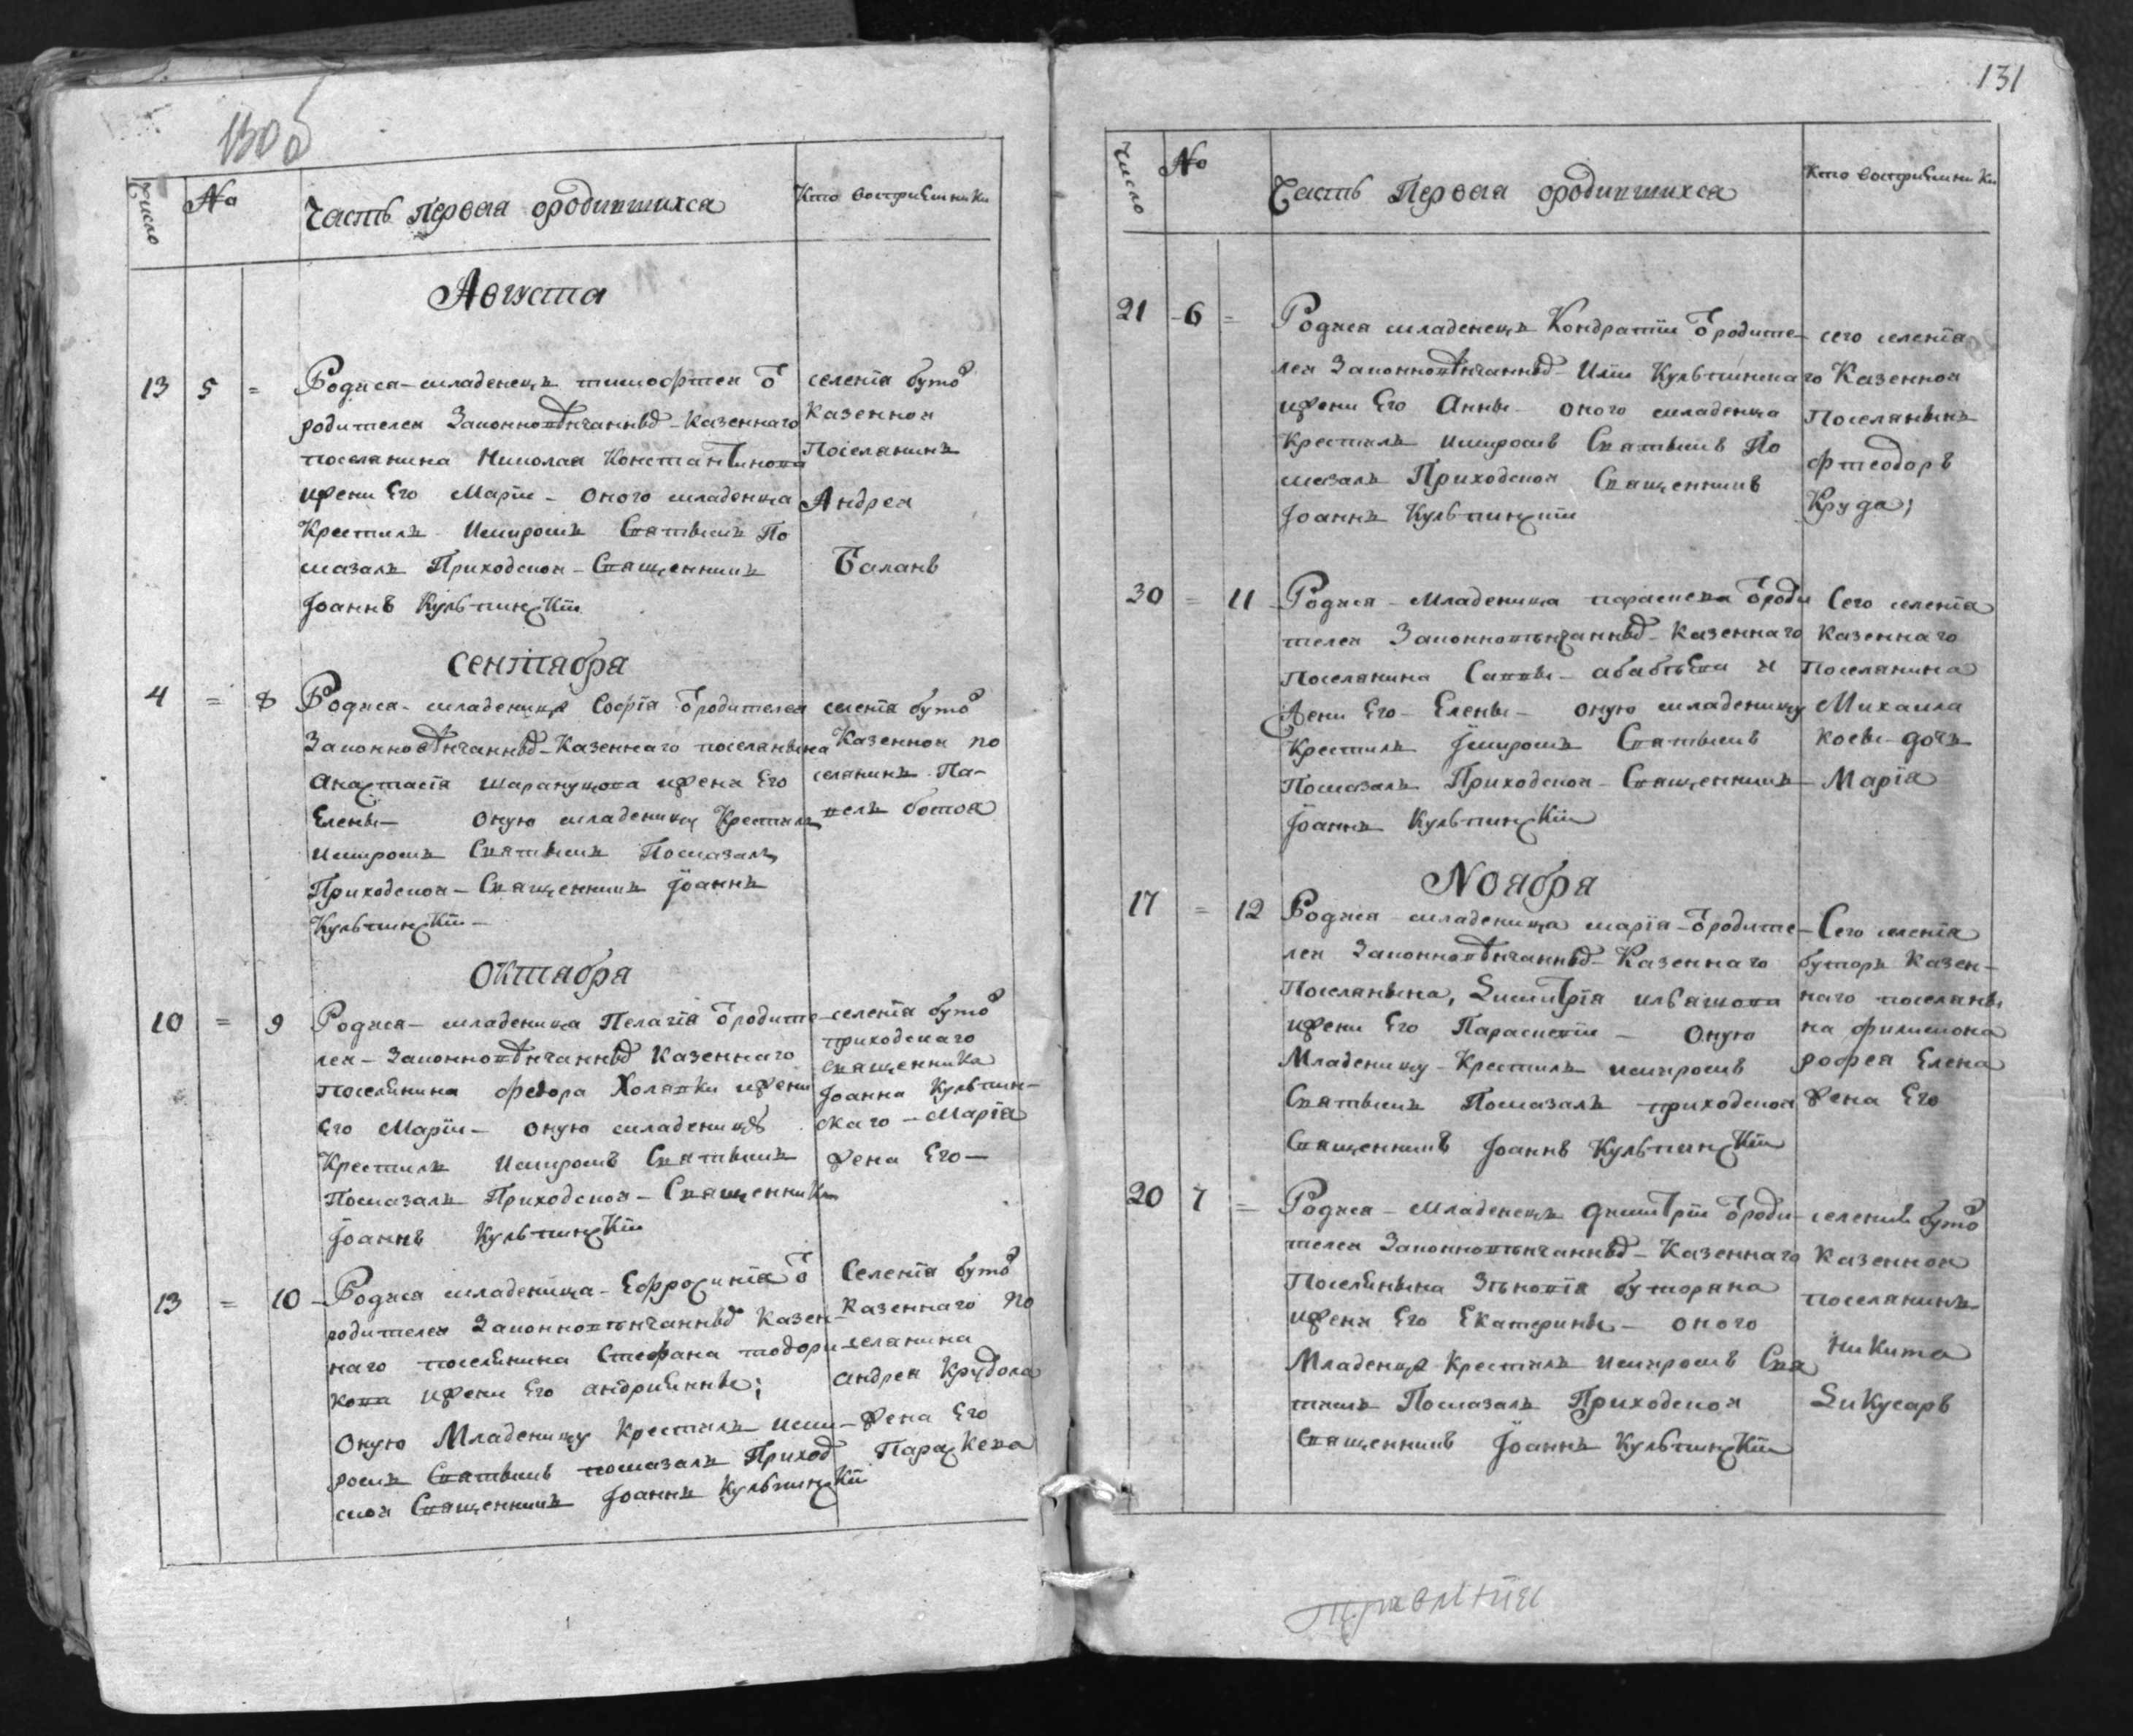 130 об
Число
No
Часть Первая ородившихся
Кто восприемники
Августа
13 5 =
Родися младенецъ тимофтей ѿ
родителей Законновѣнчанныхъ Казеннаго
поселянина Николая Константинова
ижени Его Маріи оного младенца
Крестилъ Имиромъ Святымъ По
мазалъ Приходской Священникъ
Іоаннъ Кульчицкій
селенія буто
Казенной
Поселянинъ
Андрей
Баланъ
Сентября
4 = 8
Родися младеница Софія ѿродителей
Законновѣнчанныхъ Казеннаго поселянина
Анастасія ижени Его
Елены Оную младеницу Крестилъ
Имиромъ Святымъ Помазалъ
Приходской Священникъ Іоаннъ
Кульчицкій
селенія буто
Казенной по
селянинъ Па-
велъ ботоя
Октября
10 = 9
Родися младеница Пелагія ѿродите-
лей Законновѣнчанныхъ Казеннаго
поселянина федора Холявки ижени
Его Маріи оную младеницу
Крестилъ Имиромъ Святымъ
Помазалъ Приходской Священникъ
Іоаннъ Кульчицкій
селенія буто
приходскаго
священника
Іоанна Кульчин-
скаго Марія
жена Его
13 = 10
Родися младеница Ефросинія ѿ
родителей Законновѣнчанныхъ Казен-
наго поселянина Стефана тодори
кова ижени Его андріянны;
Оную Младеницу Крестилъ ими-
ромъ Святымъ помазалъ Приход
ской Священникъ Іоаннъ Кульчицкій
Селенія буто
Казеннаго по
селянина
андрея Крудова
жена Его
Параскева
131
Число
No
Часть Первая ородившихся
Кто восприемники
21 6 =
Родися младенецъ Кондратій ѿродите-
лей Законновѣнчанныхъ Иліи Кульчинскаго
ижени Его Анны оного младенца
Крестилъ Имиромъ Святымъ По
мазалъ Приходской Священникъ
Іоаннъ Кульчицкій
сего селенія
Казенной
Поселянинъ
фтеодоръ
Круда;
30 = 11
Родися Младеница параскева ѿроди
телей Законновѣнчанныхъ Казеннаго
Поселянина Саввы и
жени Его Елены оную младеницу
Крестилъ Імиромъ Святымъ
Помазалъ Приходской Священникъ
Іоаннъ Кульчицкій
Сего селенія
казеннаго
Поселянина
Михаила
дочь
Марія
Ноября
17 = 12
Родися младеница марія ѿродите-
лей Законновѣнчанныхъ Казеннаго
Поселянина, Димитрія ивашова
ижени Его Параскевіи Оную
Младеницу Крестилъ имиромъ
Святымъ Помазалъ приходской
Священникъ Іоаннъ Кульчицкій
Сего селенія
буторъ казен-
наго поселяни
на филимона
Елена
жена Его
20 7 =
Родися Младенецъ димитрій ѿроди-
телей Законновѣнчанныхъ Казеннаго
Поселянина Зѣновія буторяна
ижени Его Екатерины оного
Младенца Крестилъ имиромъ Свя
тымъ Помазалъ Приходской
священникъ Іоаннъ Кульчицкій
селенія буто
казенной
поселянинъ
никита
Дикусаръ